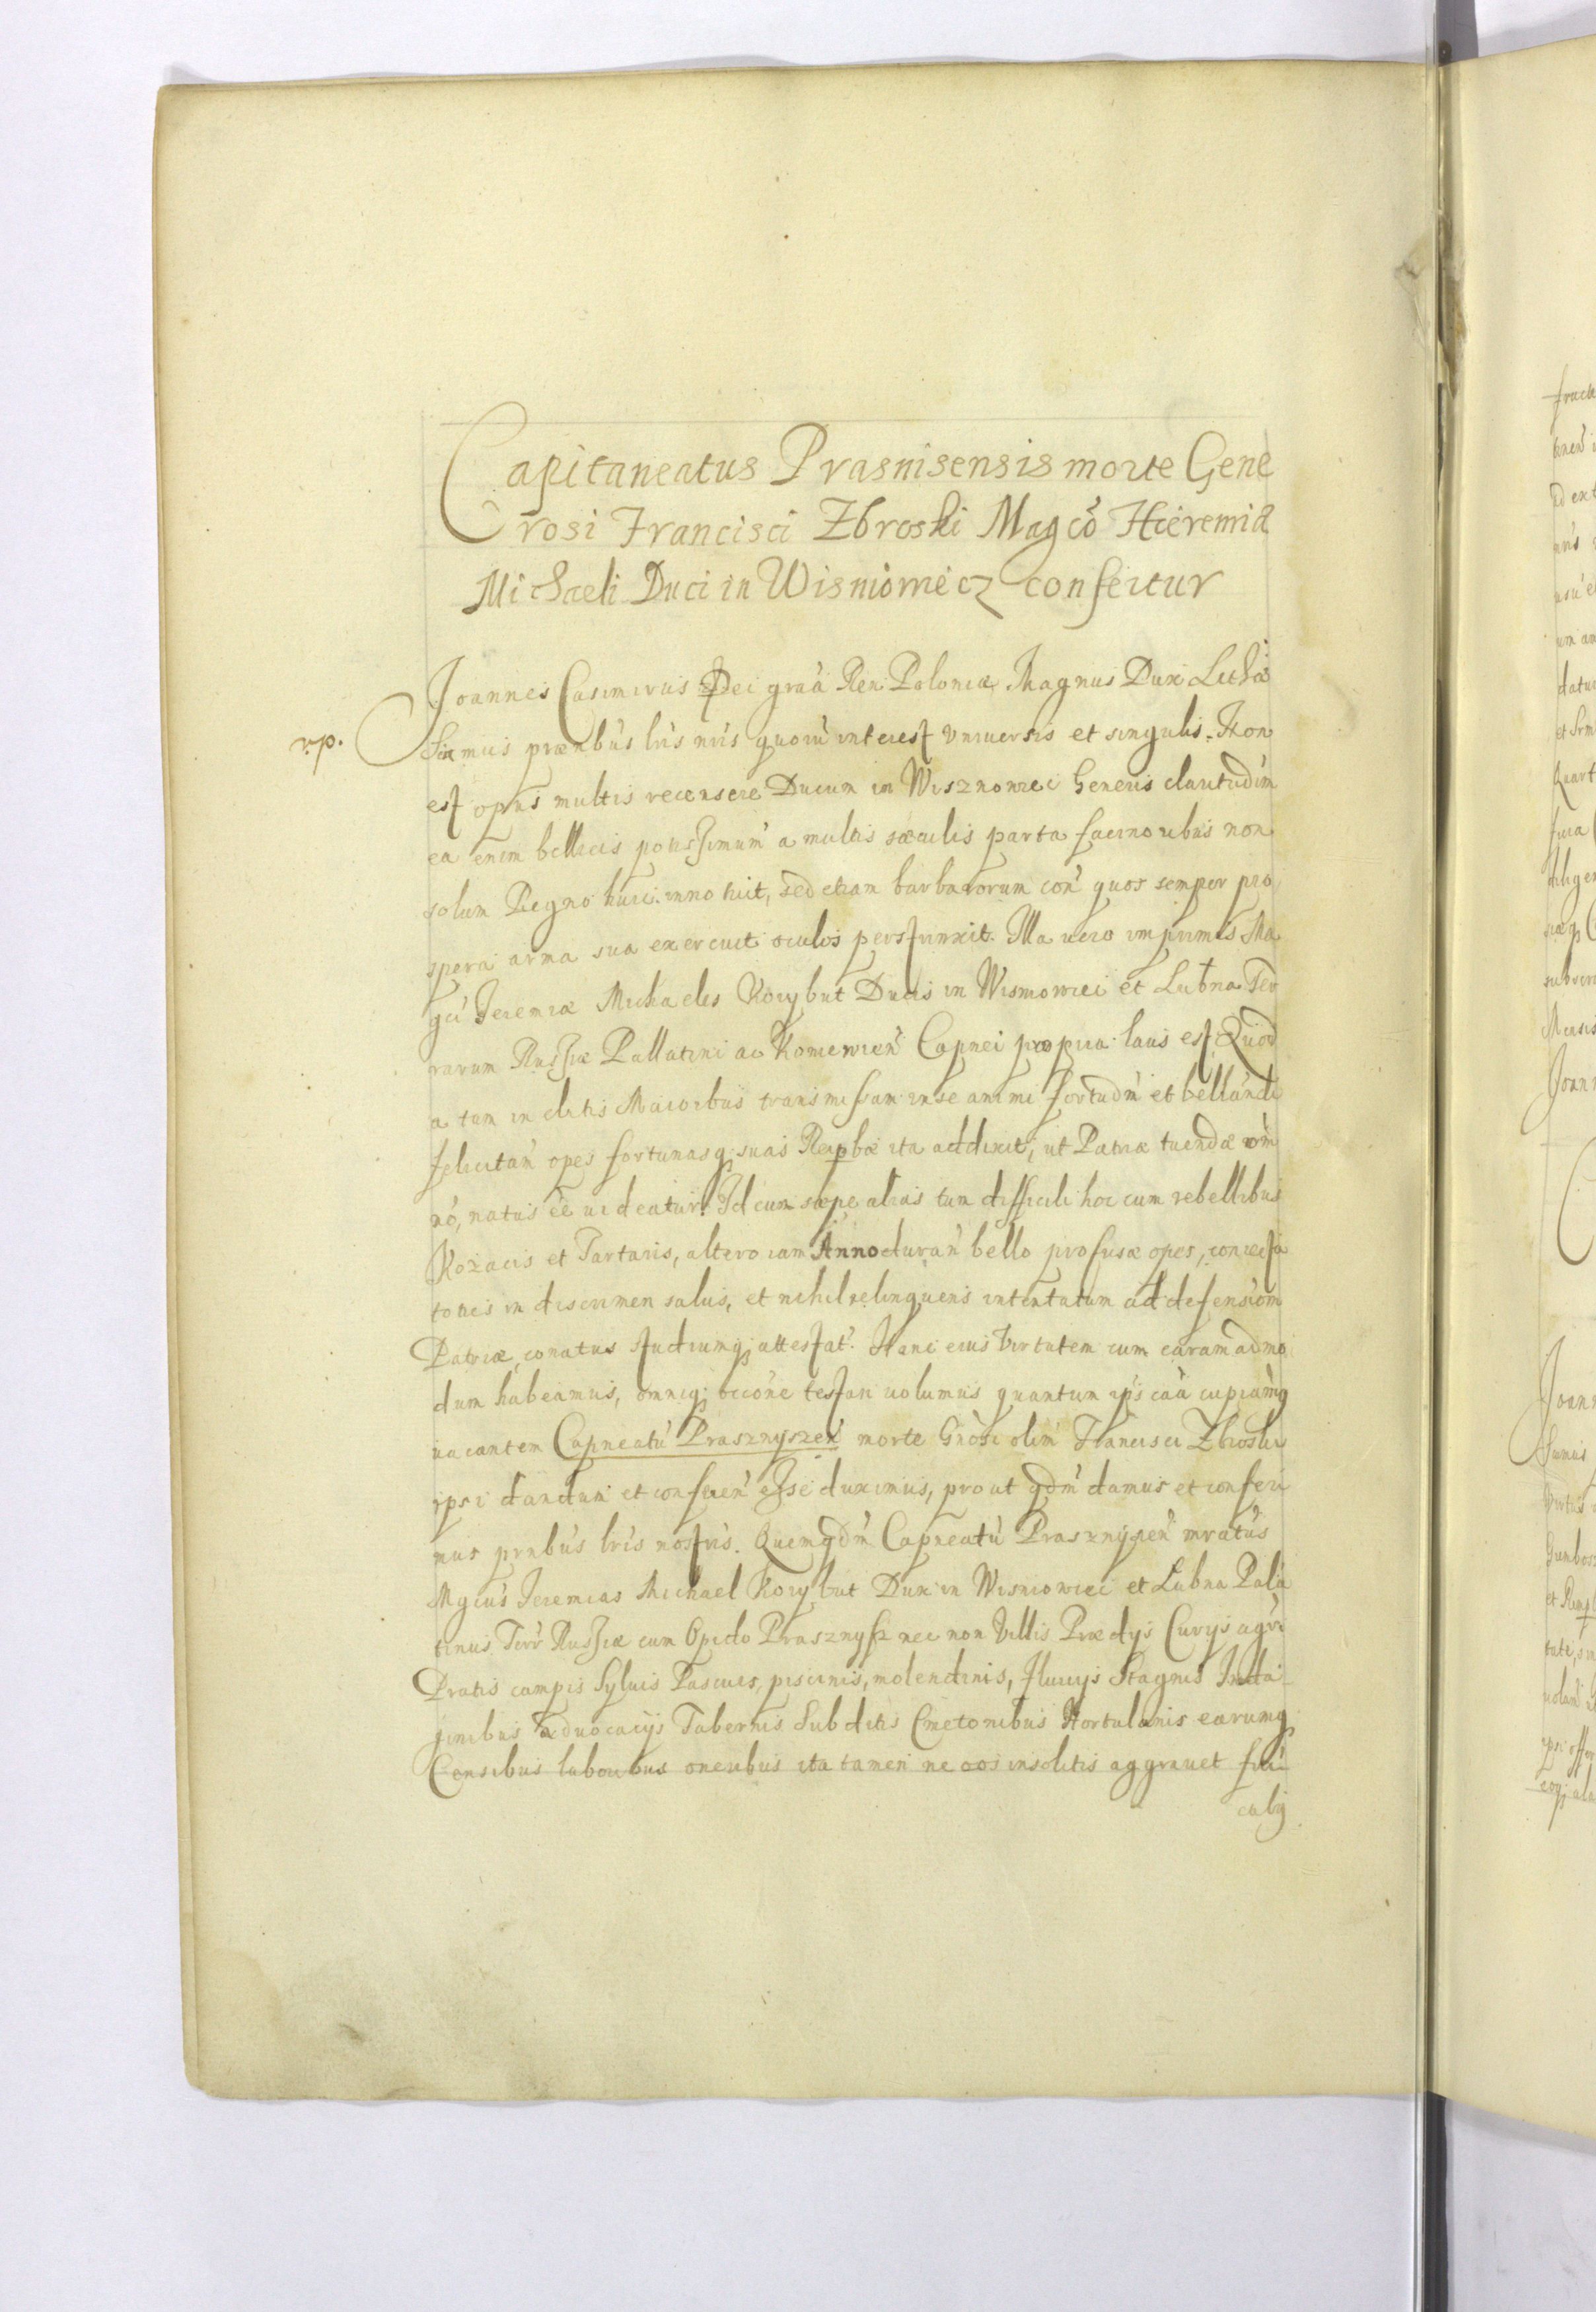 Capitaneatus Prasnisensis morte Gene
rosi Francisci Zbroski Magcō Hieremiæ
Michaeli Duci in Wisniowiecz confertur
Joannes Casimirus Dei grãa Rex Poloniæ Magnus Dux Lithã
r.p.
Siã mus prænbūs lrīs nrīs quorū interest vniuersis et singulis. Non
est opus multis recensere Ducum in Wisznowiec Generis claritudīm
ea enim bellicis potissimum a multis sæculis parta facinoribus non
solum Regno huic innotuit, sed etiam barbarorum con̄ quos semper pro
spera arma sua exercuit oculos perstrinxit. Illa uero imprimis Ma
gci Jeremiæ Michaelis Korybut Ducis in Wisniowiec et Lubna Ter
rarum Russiæ Pallatini ac Capnei propria laus est Quod
a tam in clitis Maioribus transmissam in se animi fortudm̄ et bellandi
felicitan̄ opes fortunasq; suas Reipbæ ita addixit, ut Patriæ tuendæ om̄
nō, natus eē uideatur. Id cum sæpe alias tum difficili hoc cum rebellibus
Kozacis et Tartaris, altero iam Anno duran̄ bello profusæ opes, coniecta
toties in discrimen salus, et nihil relinquens intentatum ad defensiom̄
Patriæ conatus studiumq; attestat̄. Hanc eius Virtutem cum caram admo
dum habeamus, omniq; occōne testari uolumus quantum ips̄ caã cupiamq
uacantem Capneatū Prasznyszen̄ morte Gnōsi olim Francisci Zbroski
ipsi dandum et conferen̄ esse duximus, prout qdm̄ damus et conferi
mus prnbūs lrīs nostrīs. Quemqdm̄ Capneatū Prasznyszen̄ mratūs
Mgcūs Jeremias Michael Korybut Dux in Wisniowiec et Lubna Pala
tinus Terr̄ Russiæ cum Opido Prasznysz nec non Villis Prædys Curys agrī
Pratis campis Syluis Pascuis, piscinis, molendinis, Fluuys Stagnis Inda
ginibus aduocacijs Tabernis Subditis Cmetonibus Hortulanis earumq
Censibus laboribus oneribus ita tamen ne eos insolitis aggrauet fru